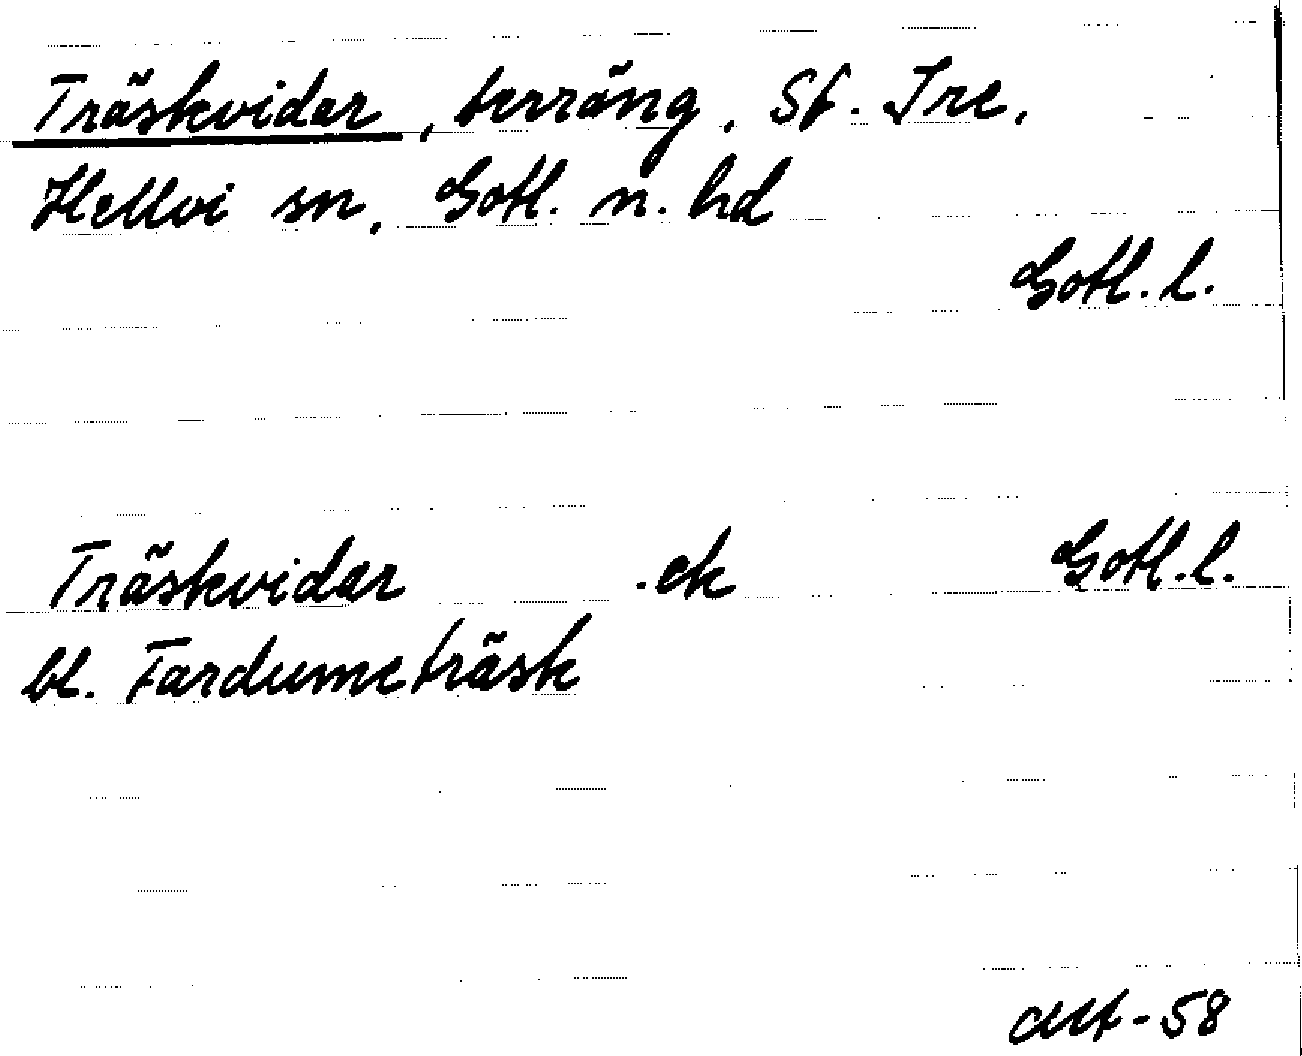 Träskvidar, terräng, St. Ire,
Hellvi sn, Gotl. n. hd
Gotl. l.
Träskvidar .ek Gotl. l.
bl. Fardumeträsk
-58